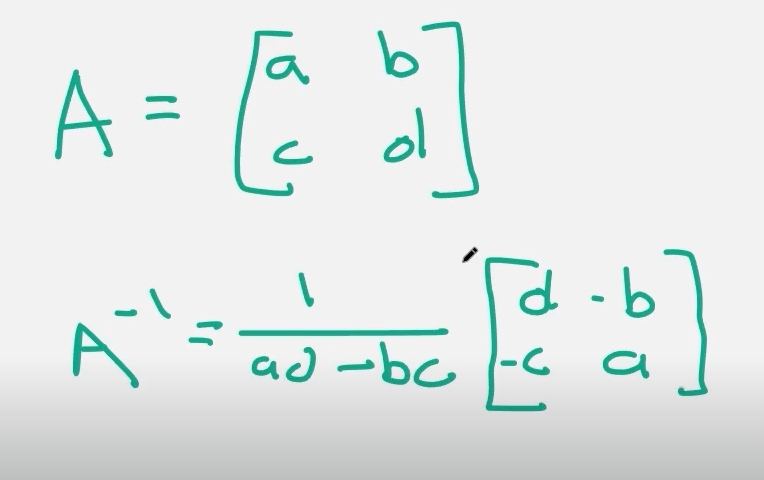 A = [a b
c d]
A⁻¹ = 1/(ad - bc) [d -b
-c a]